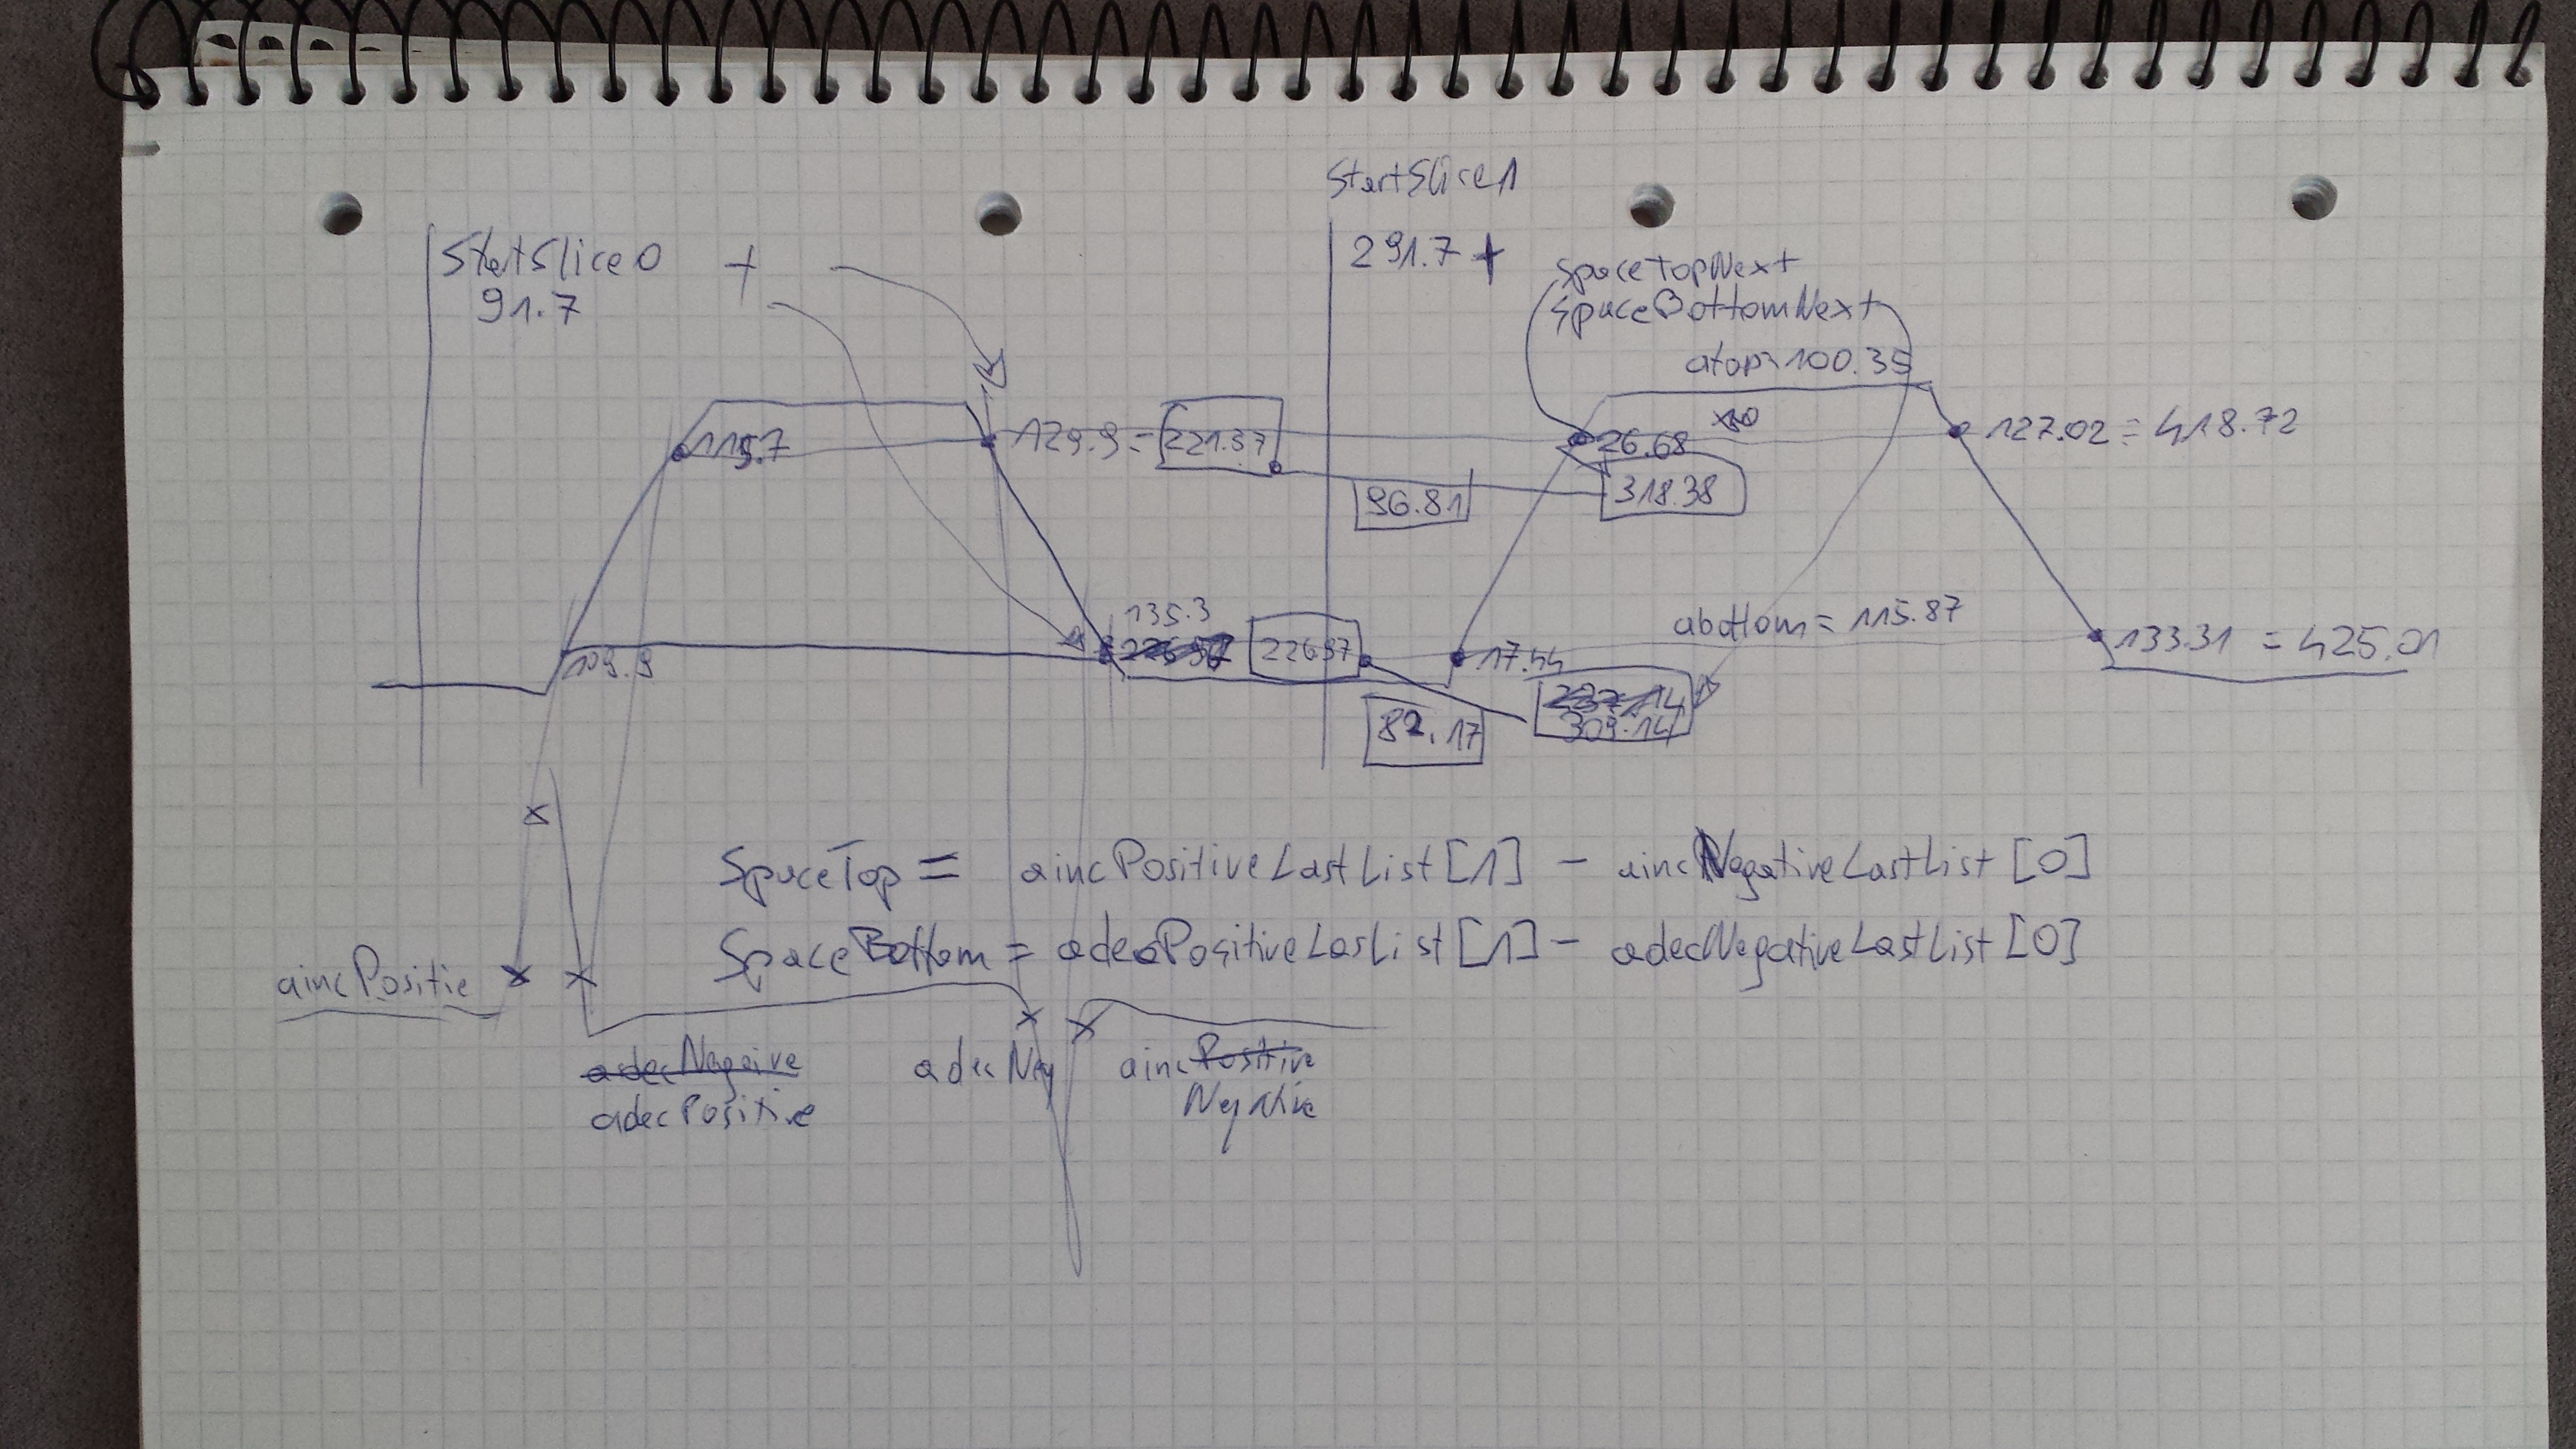 StartSlice1
StartSlice0 +
91.7
291.7 +
SpaceTopNext
SpaceBottomNext
atop=100.35
129.9 = 221.37
26.68
127.02 = 418.72
96.81
318.38
135.3
226.97
109.9
17.44
abottom = 115.87
133.31 = 425.01
82.17
309.14
SpaceTop = aincPositiveLastList[1] - aincNegativeLastList[0]
SpaceBottom = adecPositiveLasList[1] - adecNegativeLastList[0]
aincPositie
adecNegaive
adecPositive
adecNeg
aincPositive
Negative